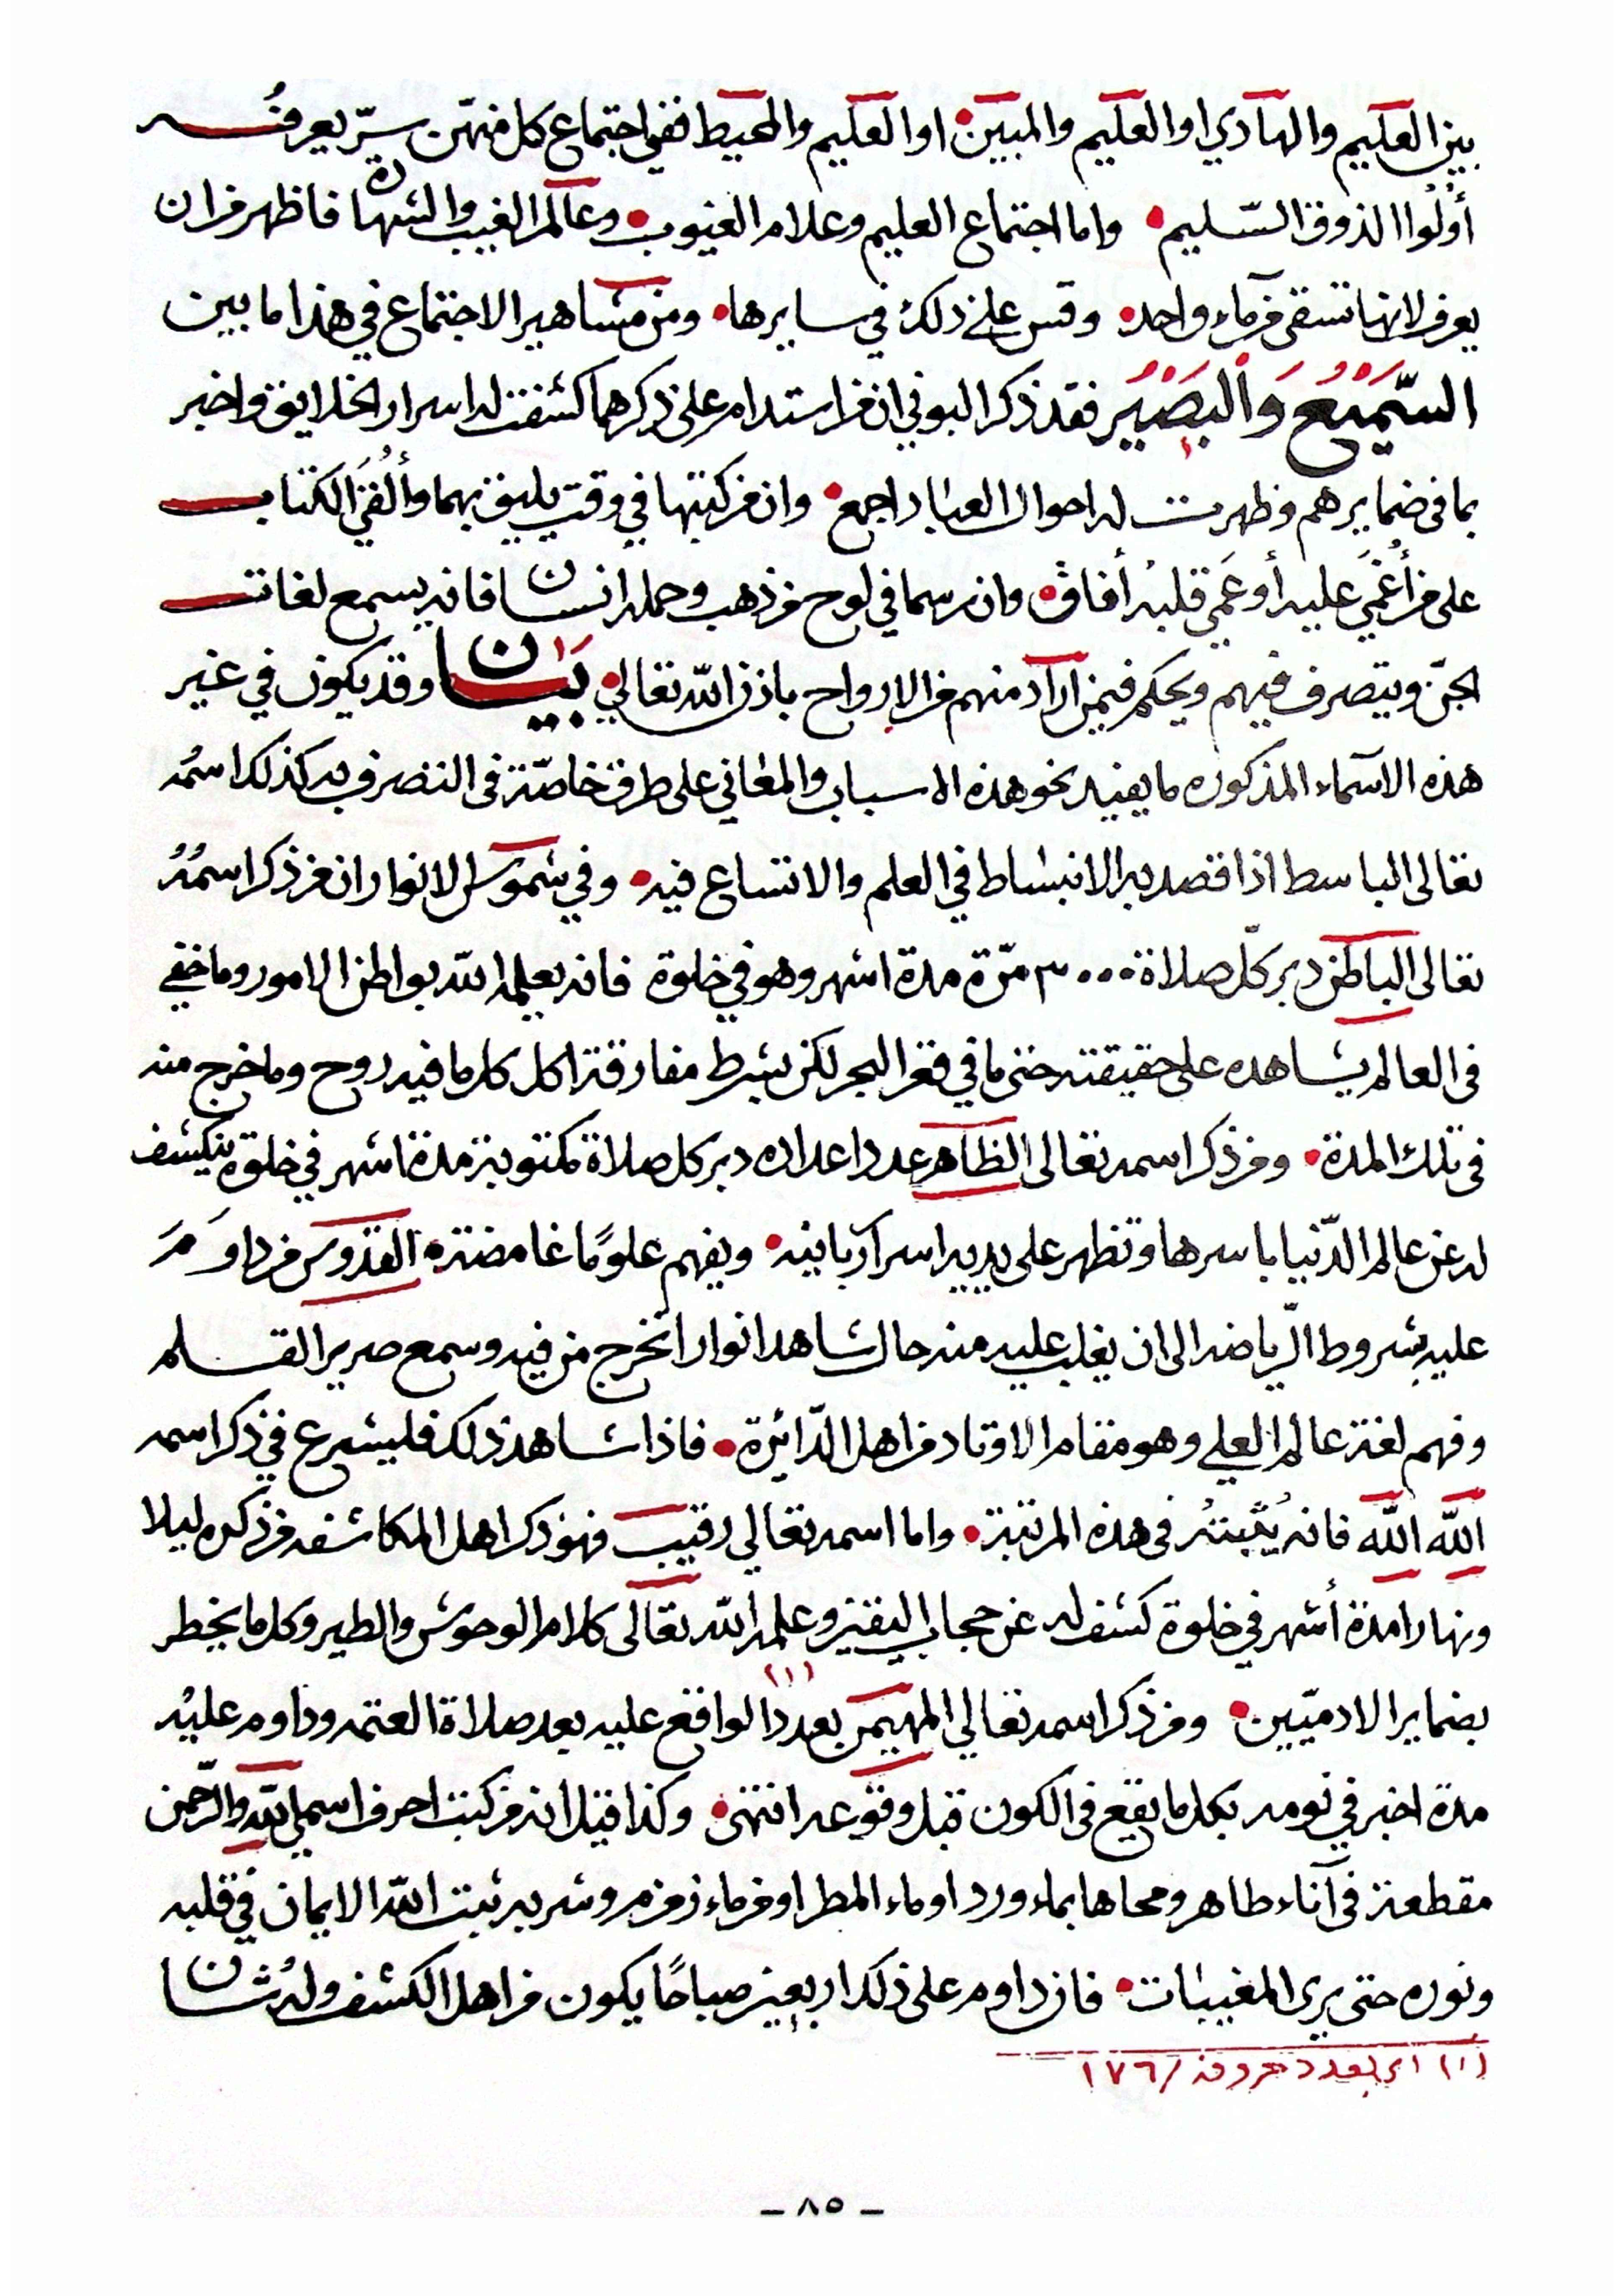 بين العليم والهادي او العليم والمبين • او العليم والمحيط ففي اجتماع كل منهن سرّ يعرفُه
أولُوا الذوق السّليم • واما اجتماع العليم وعلام الغيوب • وعالم الغيب والشهادة فاظهر من ان
يعرف لانها تسقى من ماء واحد • وقس على ذلك في سايرها • ومن مشاهير الاجتماع في هذا ما بين
السَّمِيْعُ وَالْبَصِيْر فقد ذكر البوني ان من استدام على ذكرهما كشفت له اسرار الخلايق واخبر
بما في ضمايرهم وظهرت له احوال العباد اجمع • وان من كتبها في وقت يليق بهما وألُقيَ الكتاب
على من أُغمَي عليه أو عَمِي قلبه أفاق • وان رسما في لوح من ذهب وحمله انسان فانه يسمع لغات
الجنّ ويتصرف فيهم ويحكم فيمن اراد منهم من الارواح باذن اللّه تعالى • بَيَان وقد يكون في غير
هذه الاسماء المذكوره ما يفيد نحو هذه الاسباب والمعاني على طرق خاصّة في التصرف به كذلك اسمُه
تعالى الباسط اذا قصد به الانبساط في العلم والاتساع فيه • وفي شموس الانوار ان من ذكر اسمُهُ
تعالى الباطن دبر كلّ صلاة ٣٠٠٠ مرّة مدة اشهر وهو في خلوة فانه يعلمه اللّه بواطن الامور وما خفي
في العالم يشاهده على حقيقته حتى ما في قعر البحر لكن بشرط مفارقة اكل كلما فيه روح وما خرج منه
في تلك المدة • ومن ذكر اسمه تعالى الظاهر عدد اعداده دبر كل صلاة مكتوبة مدة اشهر في خلوة ينكشف
له عن عالم الدّنيا باسرها وتظهر على يديه اسرار ربانيه • ويفهم علومًا غامضة • القدوس من داوَمَ
عليه بشروط الرّياضه الى ان يغلب عليه منه حال شاهد انوارا تخرج من فيه وسمع صرير القلم
وفهم لغة عالم العلي وهو مقام الاوتاد من اهل الدّائرة • فاذا شاهد ذلك فليشرع في ذكر اسمه
اللّه اللّه فانه يُثبتهُ في هذه المرتبة • واما اسمه تعالى رقيب فهو ذكر اهل المكاشفه من ذكره ليلا
ونهارا مدة أشهر في خلوة كشف له عن حجاب اليقين وعلمه اللّه تعالى كلام الوحوش والطير وكل ما يخطر
بضماير الادميّين • ومن ذكر اسمه تعالى المهيمن بعدد (١) الواقع عليه بعد صلاة العتمه وداوم عليه
مدة اخبر في نومه بكل ما يقع في الكون قبل وقوعه انتهى • وكذا قيل انه من كتب احرف اسمي اللّه والرّحمن
مقطعة في آناء طاهر ومحاها بماء ورد او ماء المطر او من ماء زمزم وشربه ثبت اللّه الايمان في قلبه
ونوره حتى يرى المغيبات • فان داوم على ذلك اربعين صباحًا يكون من اهل الكشف وله شان
(١) اي بعدد حروفه / ١٧٦
- ٨٥ -